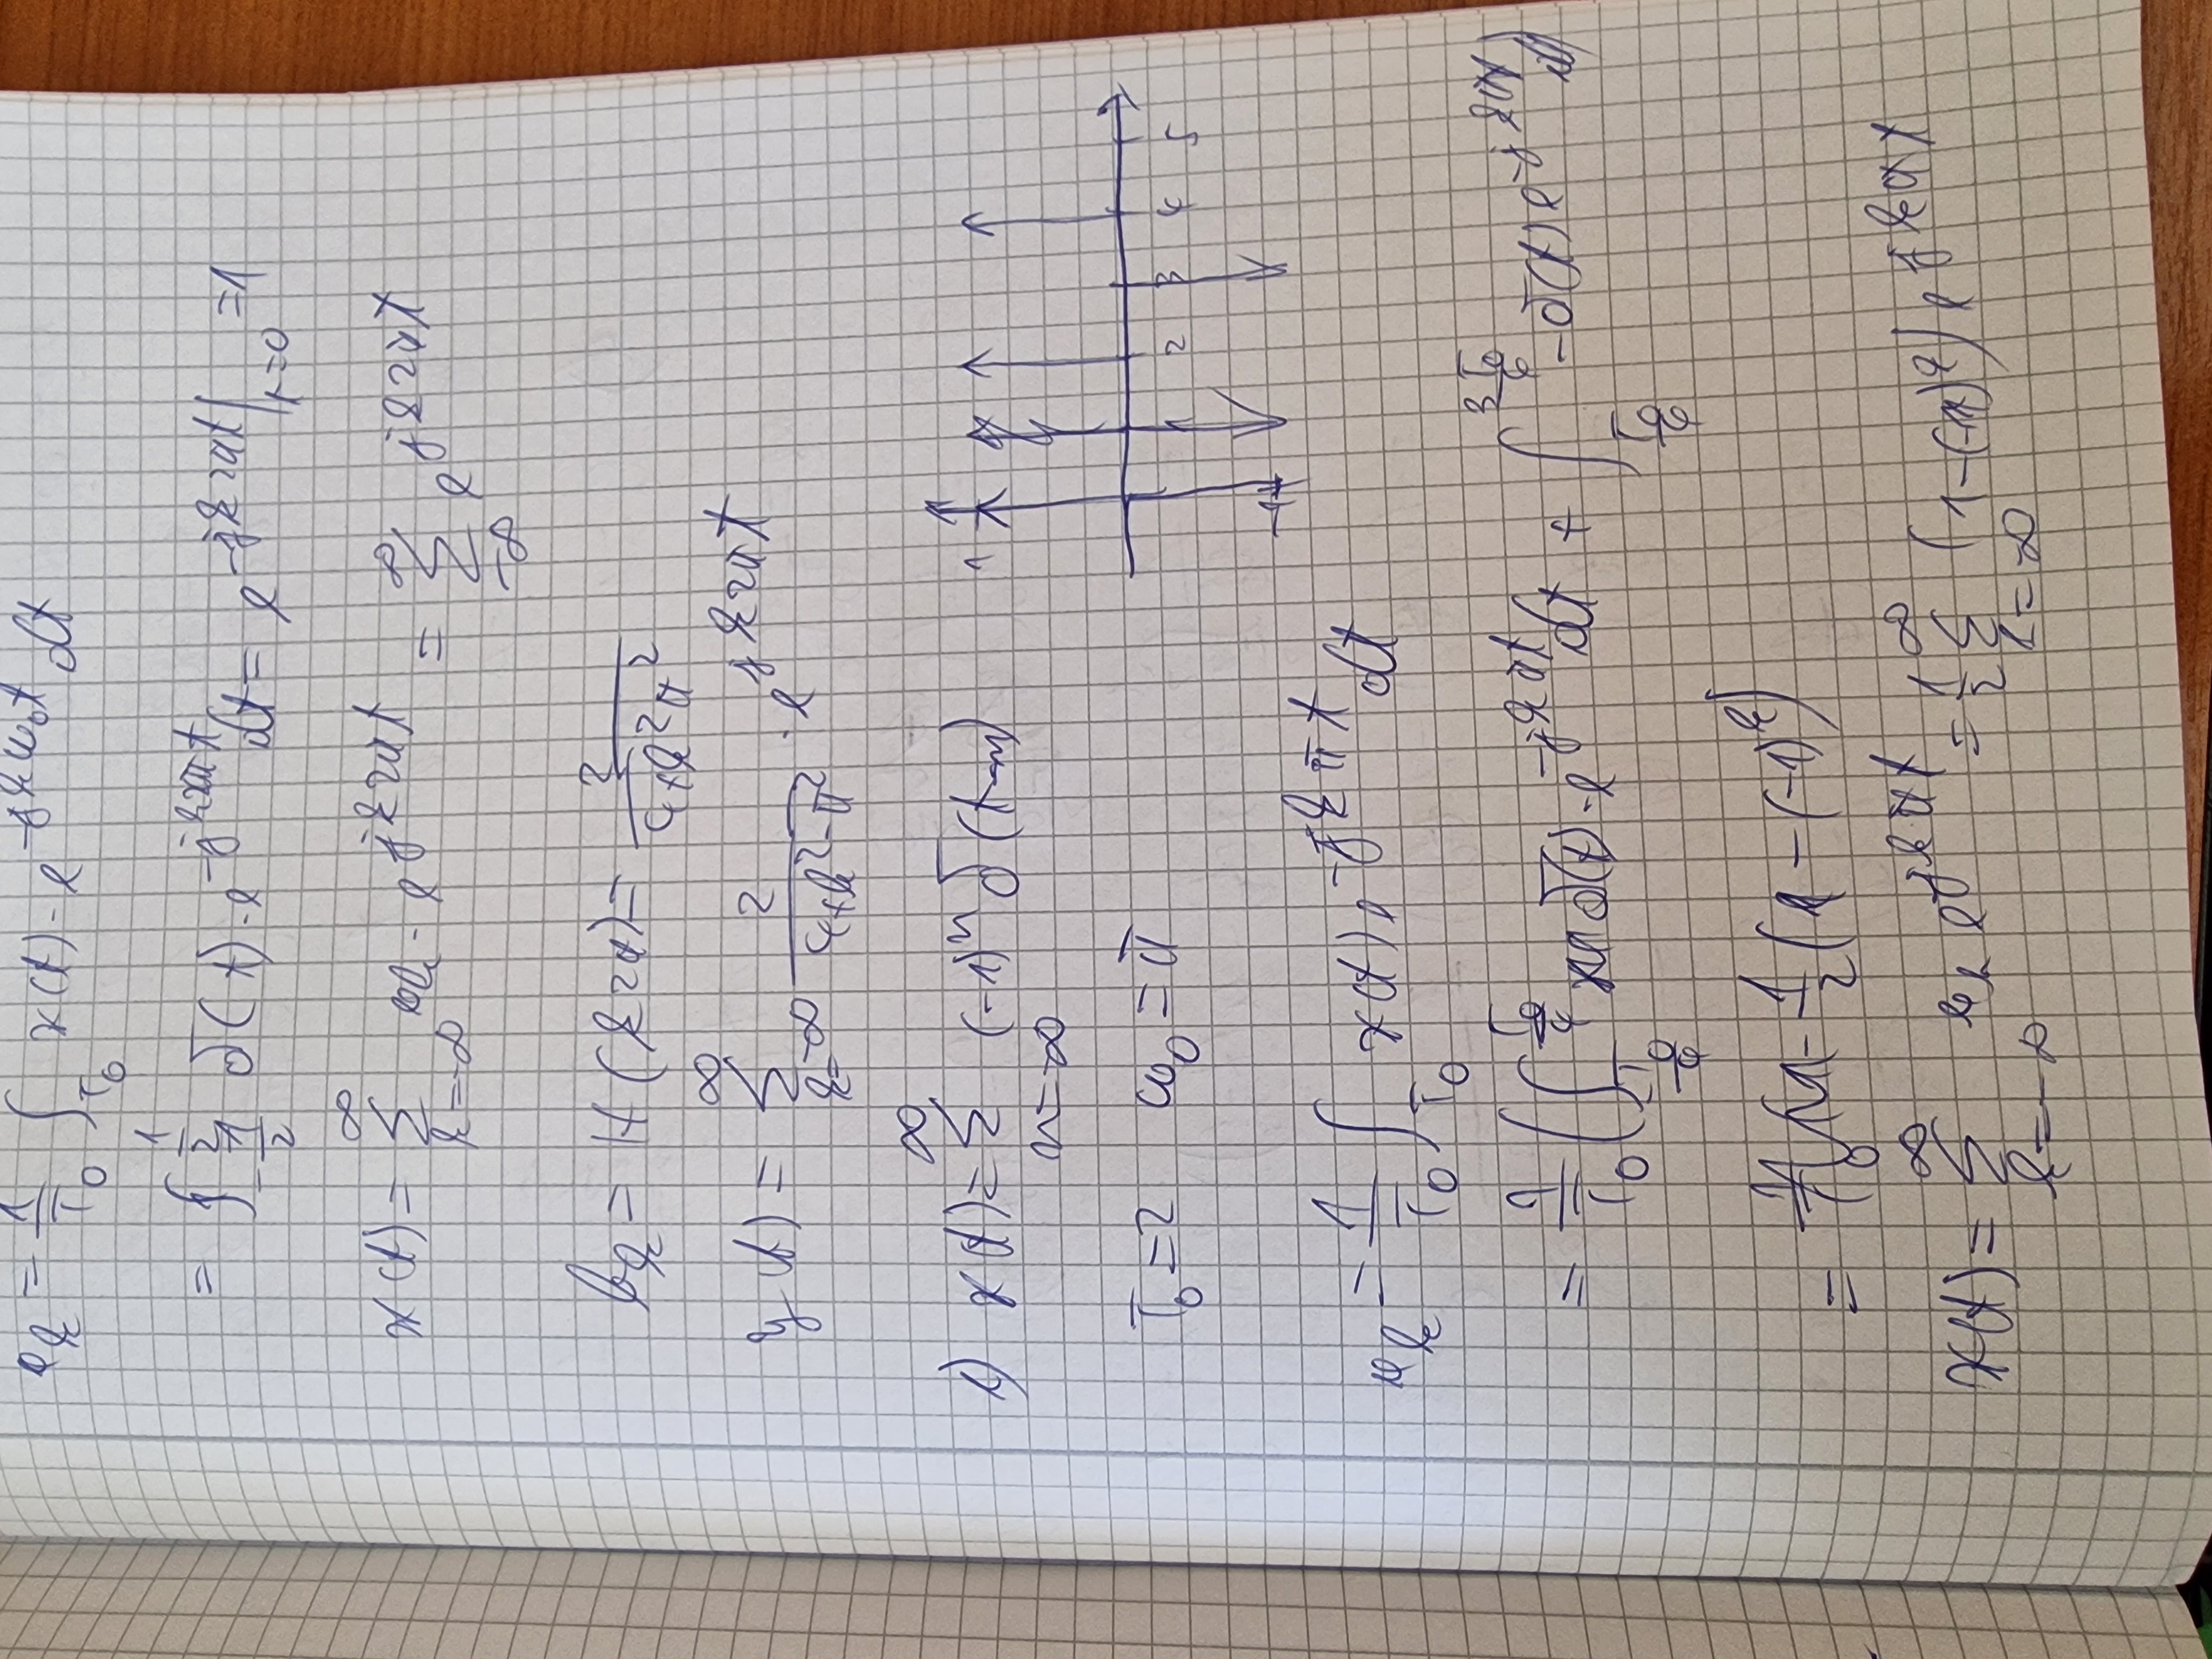 a_k = 1/T_0 ∫_{T_0} x(t) · e^{-jkω_0t} dt
= ∫_{-1/2}^{1/2} δ(t) · e^{-jk2πt} dt = e^{-jk2πt} |_{t=0} = 1
x(t) = ∑_{k=-∞}^{∞} a_k · e^{jk2πt} = ∑_{-∞}^{∞} e^{jk2πt}
b_k = H(k2π) = 2/(4+k²π²)
y(t) = ∑_{k=-∞}^{∞} 2/(4+k²-π²) · e^{jk2πt}
x(t) = ∑_{n=-∞}^{∞} (-1)^n δ(t-n)
1
T_0 = 2 ω_0 = π
1 2 3 4 5
-1
a_k = 1/T_0 ∫_{T_0} x(t) e^{-jkπt} dt
= 1/T_0 ( ∫_{-T_0/4}^{T_0/4} δ(t) · e^{-jkπt} dt + ∫_{T_0/4}^{3T_0/4} -δ(t) e^{-jkπt} dt )
= 1/2 (1 - (-1)^k)
x(t) = ∑_{k=-∞}^{∞} a_k e^{jkπt} = 1/2 ∑_{k=-∞}^{∞} (1-(-1)^k) e^{jkπt}